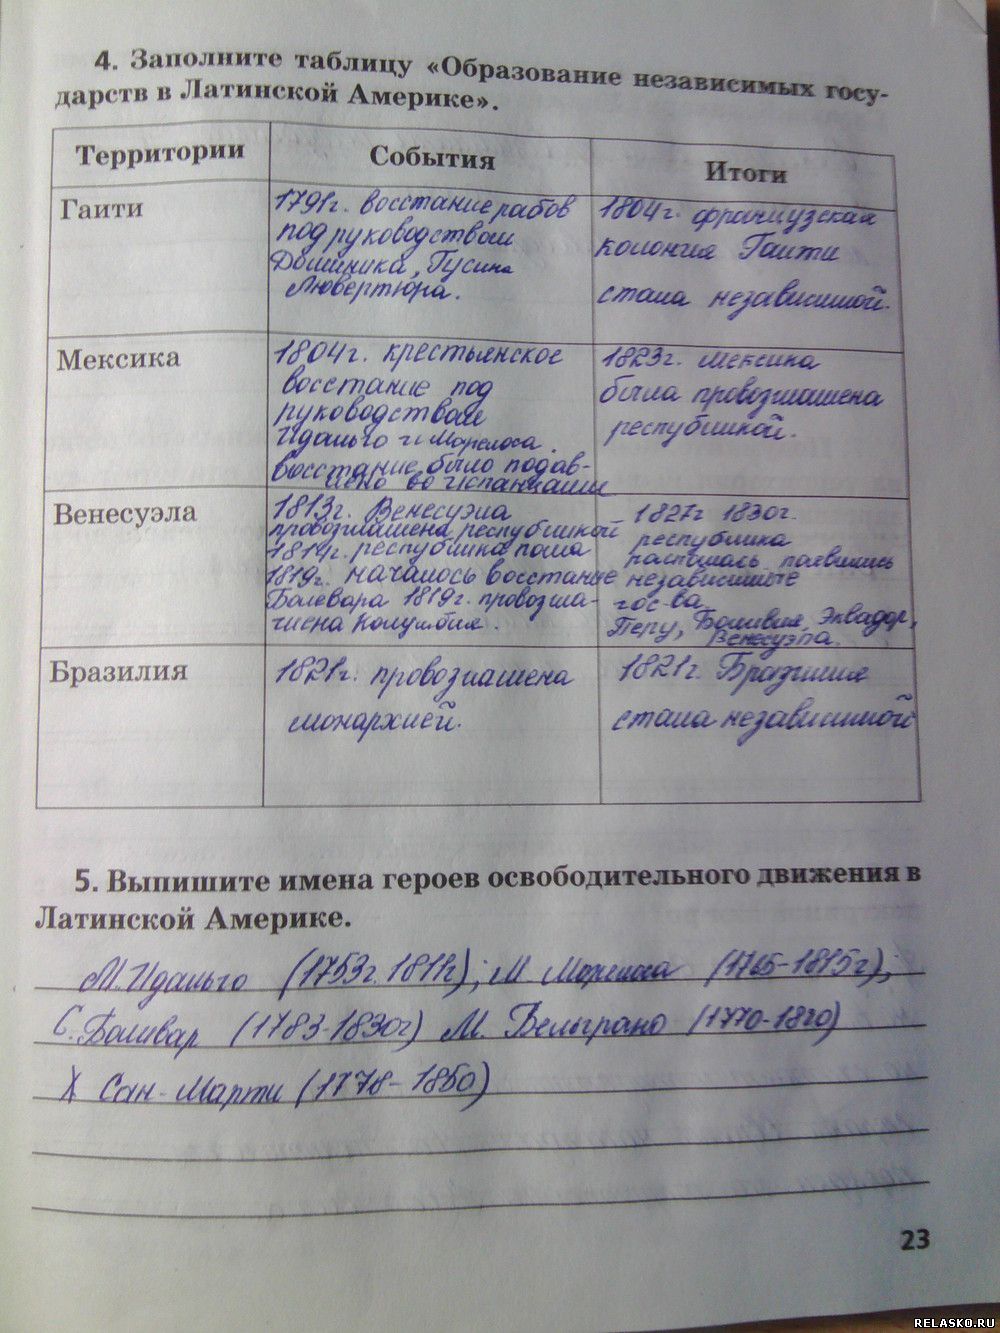 4. Заполните таблицу «Образование независимых госу-
дарств в Латинской Америке».
Территории
События
Итоги
Гаити
1791г. восстание рабов
под руководством
Доминика, Тусина
Лювертюра.
1804г. французская
колония Гаити
стала независимой.
Мексика
1804г. крестьянское
восстание под
руководством
Идальго и Морелоса.
восстание было подав-
лено во испанцами
1823г. Мексика
была провозглашена
республикой.
Венесуэла
1813г. Венесуэла
провозглашена республикой
1814г. республика пала
1819г. началось восстание
Болевара 1819г. провозгла-
чена Колумбия.
1827г 1830г.
республика
распалась появились
независимые
гос-ва
Перу, Боливия, Эквадор,
Венесуэла.
Бразилия
1821г. провозглашена
монархией.
1821г. Бразилия
стала независимой
5. Выпишите имена героев освободительного движения в
Латинской Америке.
М. Идальго (1753г. 1811г); М. Морелоса (1765-1815г);
С. Боливар (1783-1830г) М. Бельграно (1770-1820)
Х Сан-Марти (1778-1850)
23
RELASKO.RU